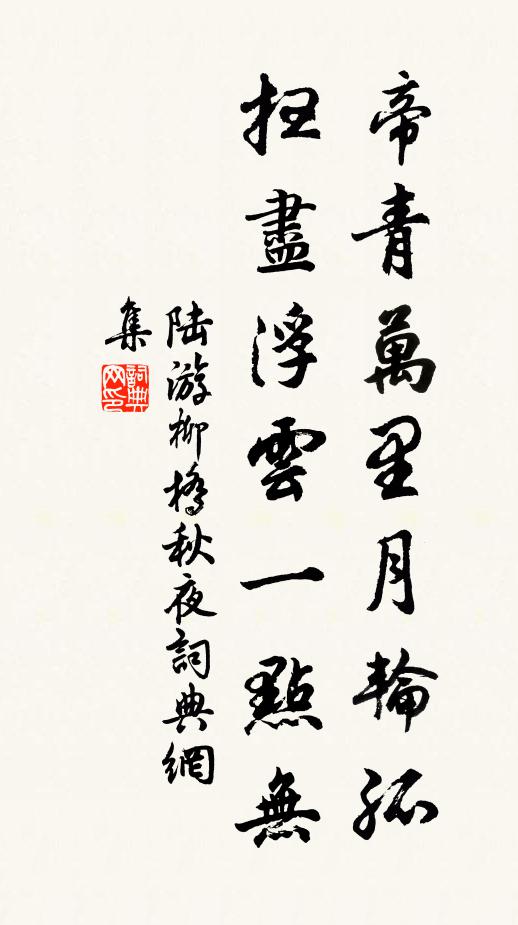 帝青萬里月輪孤
掃盡浮雲一點無
陸游柳橋秋夜詞典網
集
詞典
网印